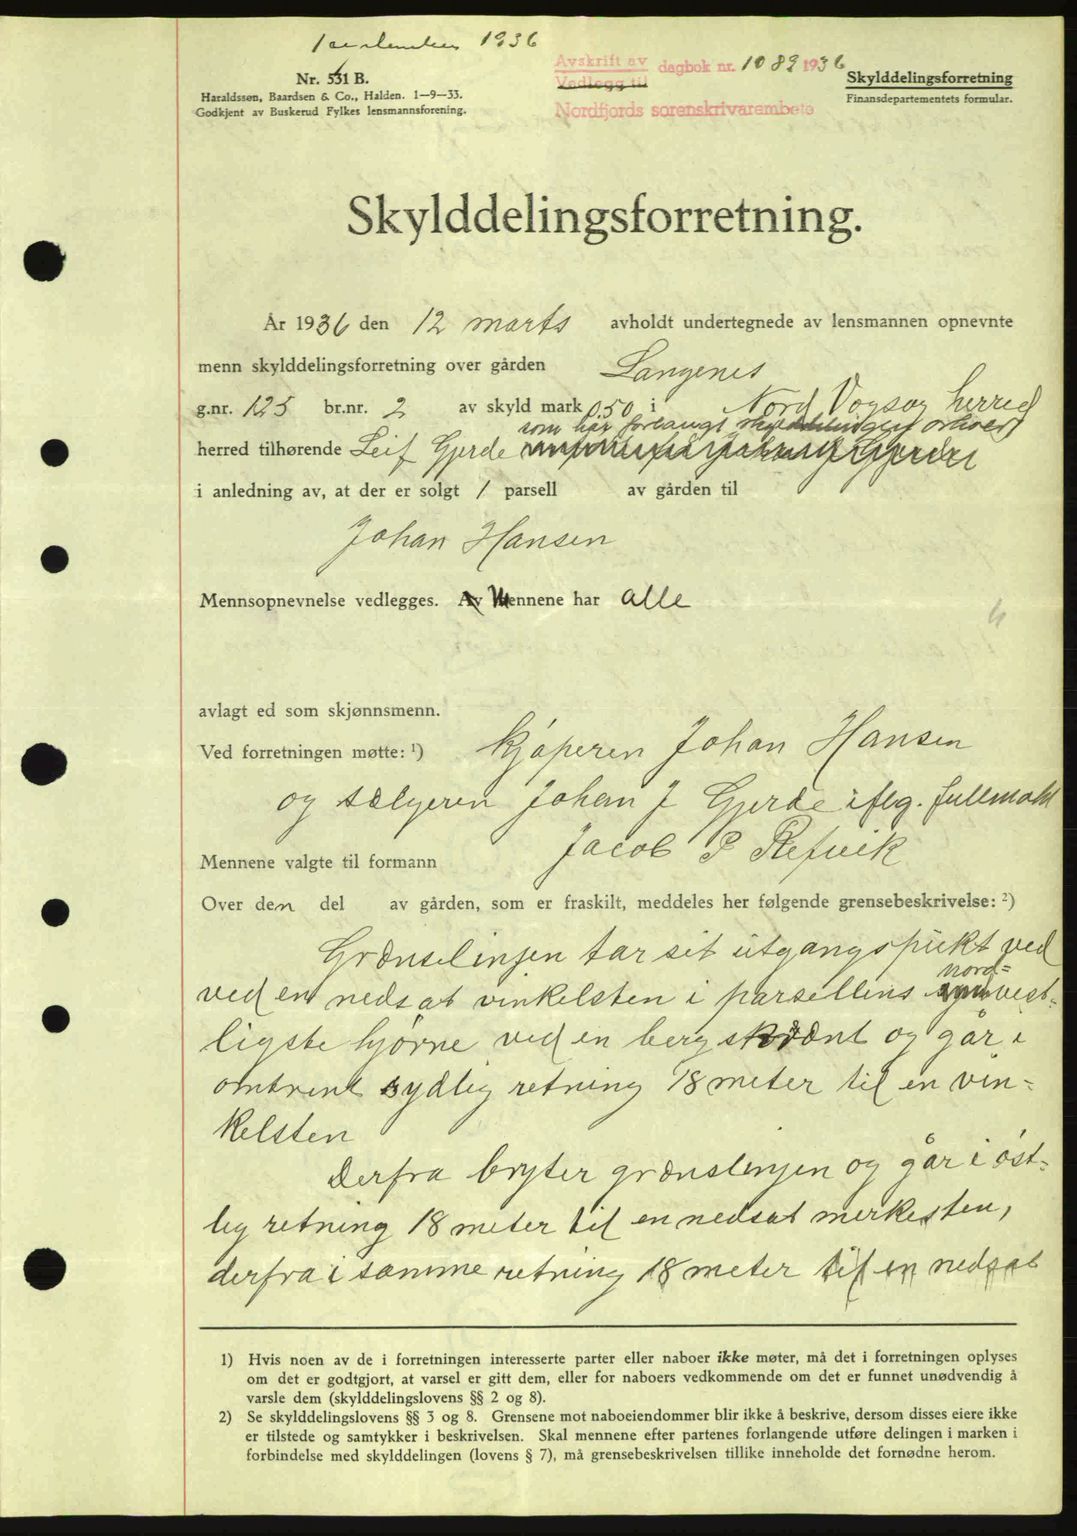 1 september 1936
Avskrift av
Vedlegg til
dagbok nr. 1089 1936
Nordfjords sorenskrivarembete
Nr. 531 B.
Haraldssøn, Baardsen & Co., Halden. 1—9—33.
Godkjent av Buskerud Fylkes lensmannsforening.
Skylddelingsforretning
Finansdepartementets formular.
Skylddelingsforretning.
År 1936 den 12 marts avholdt undertegnede av lensmannen opnevnte
menn skylddelingsforretning over gården Langenes
g.nr. 125 br.nr. 2 av skyld mark 0,50 i Nord Vogsøy herred
som har forlangt
herred tilhørende Leif Gjerde
i anledning av, at der er solgt 1 parsell av gården til
Johan Hansen
Mennsopnevnelse vedlegges. Av Mennene har alle
avlagt ed som skjønnsmenn.
Ved forretningen møtte: 1) kjøperen Johan Hansen
og sælgeren Johan J Gjerde iflg. fullmakt
Mennene valgte til formann Jacob P Refvik
Over den del av gården, som er fraskilt, meddeles her følgende grensebeskrivelse: 2)
Grænselinjen tar sit utgangspukt ved
ved en nedsat vinkelsten i parsellens nord-vest-
ligste hjørne ved en bergskrænt og går i
omtrent sydlig retning 18 meter til en vin-
kelsten
Derfra bryter grænslinjen og går i øst-
lig retning 18 meter til en nedsat merkesten,
derfra i samme retning 18 meter til en nedsat
1) Hvis noen av de i forretningen interesserte parter eller naboer ikke møter, må det i forretningen oplyses
om det er godtgjort, at varsel er gitt dem, eller for naboers vedkommende om det er funnet unødvendig å
varsle dem (skylddelingslovens §§ 2 og 8).
2) Se skylddelingslovens §§ 3 og 8. Grensene mot naboeiendommer blir ikke å beskrive, dersom disses eiere ikke
er tilstede og samtykker i beskrivelsen. Skal mennene efter partenes forlangende utføre delingen i marken i
forbindelse med skylddelingen (lovens § 7), må grensebeskrivelsen tillike inneholde det fornødne herom.